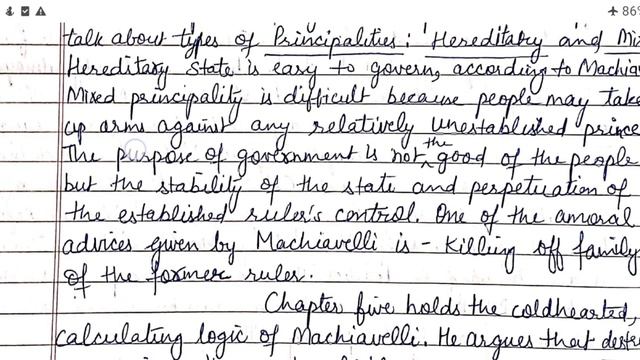 86%
talk about types of Principalities: Hereditary and Mi
Hereditary State is easy to govern, according to Machia
Mixed principality is difficult because people may take
up arms against any relatively unestablished prince
The purpose of government is not the good of the people
but the stability of the state and perpetuation of
the established ruler's control. One of the amoral
advices given by Machiavelli is - Killing off family
of the former ruler.
Chapter five holds the coldhearted,
calculating logic of Machiavelli. He argues that